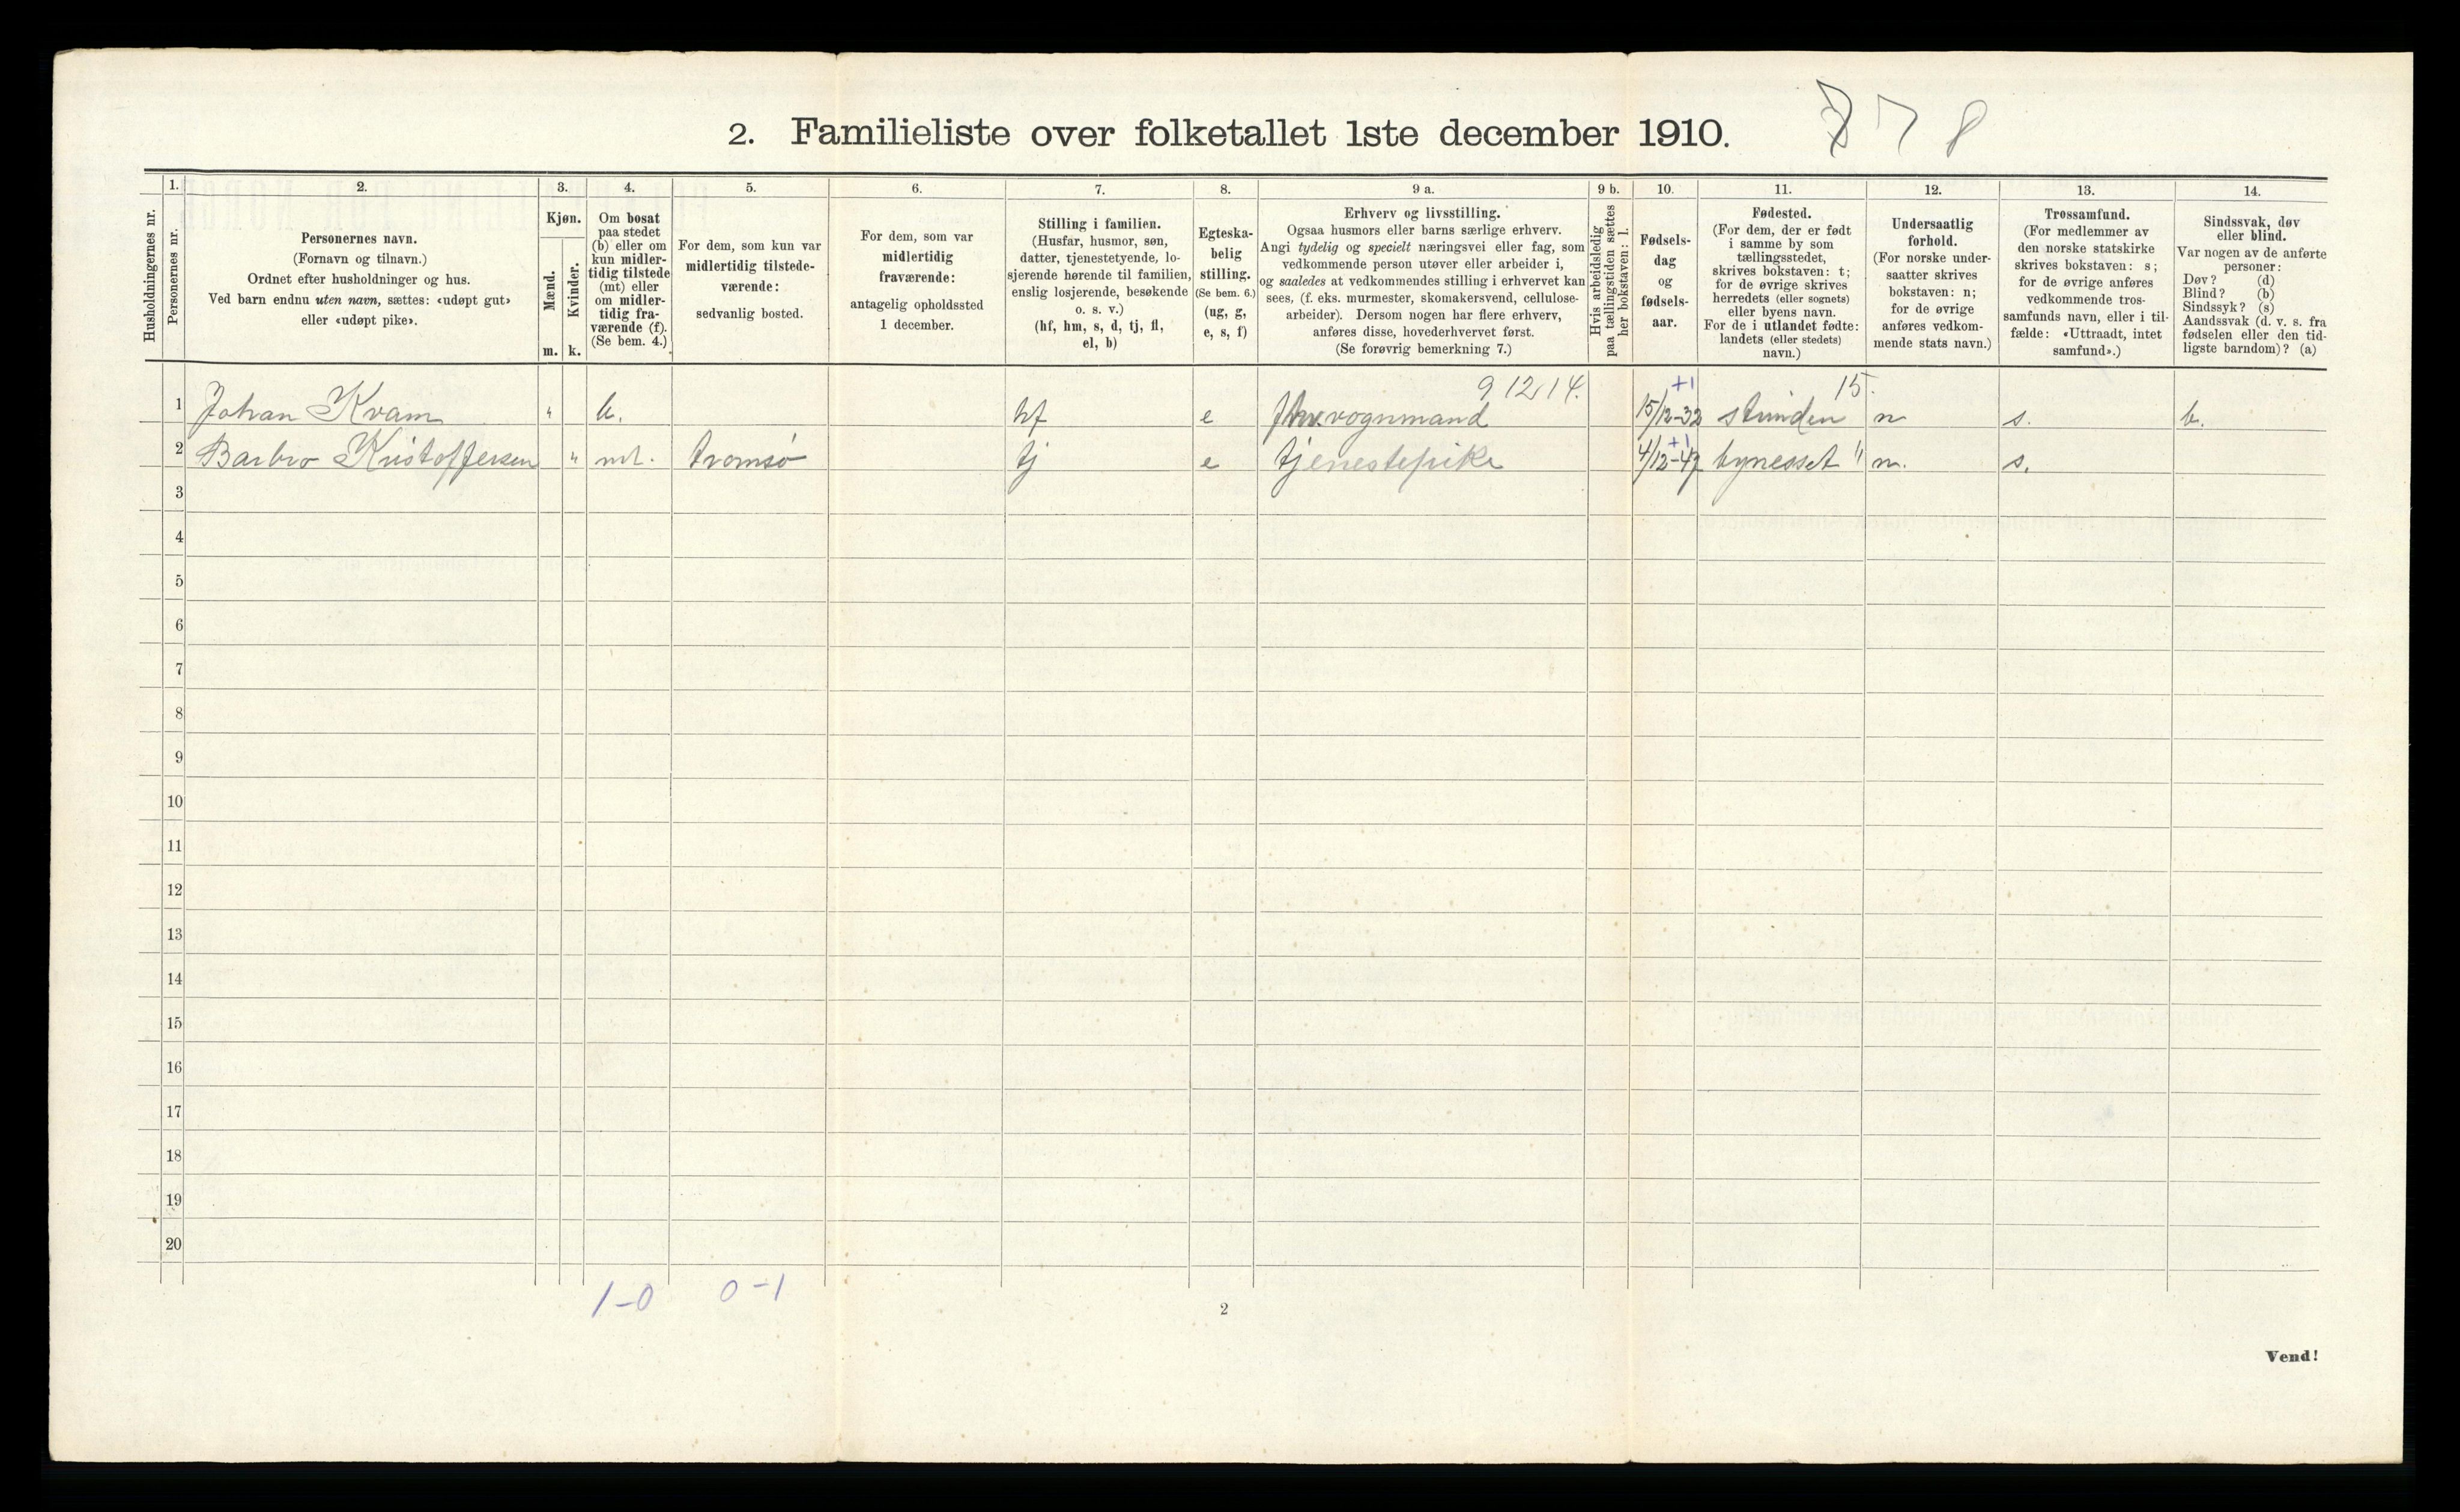 2. Familieliste over folketallet 1ste december 1910.
7 8
1. 2. 3. 4. 5. 6. 7. 8. 9 a. 9 b. 10. 11. 12. 13. 14.
Husholdningernes nr.
Personernes nr.
Personernes navn.
(Fornavn og tilnavn.)
Ordnet efter husholdninger og hus.
Ved barn endnu uten navn, sættes: «udøpt gut»
eller «udøpt pike».
Kjøn.
Mænd.
Kvinder.
m. k.
Om bosat
paa stedet
(b) eller om
kun midler-
tidig tilstede
(mt) eller
om midler-
tidig fra-
værende (f).
(Se bem. 4.)
For dem, som kun var
midlertidig tilstede-
værende:
sedvanlig bosted.
For dem, som var
midlertidig
fraværende:
antagelig opholdssted
1 december.
Stilling i familien.
(Husfar, husmor, søn,
datter, tjenestetyende, lo-
sjerende hørende til familien,
enslig losjerende, besøkende
o. s. v.)
(hf, hm, s, d, tj, fl,
el, b)
Egteska-
belig
stilling.
(Se bem. 6.)
(ug, g,
e, s, f)
Erhverv og livsstilling.
Ogsaa husmors eller barns særlige erhverv.
Angi tydelig og specielt næringsvei eller fag, som
vedkommende person utøver eller arbeider i,
og saaledes at vedkommendes stilling i erhvervet kan
sees, (f. eks. murmester, skomakersvend, cellulose-
arbeider). Dersom nogen har flere erhverv,
anføres disse, hovederhvervet først.
(Se forøvrig bemerkning 7.)
Hvis arbeidsledig
paa tællingstiden sættes
her bokstaven: l.
Fødsels-
dag
og
fødsels-
aar.
Fødested.
(For dem, der er født
i samme by som
tællingsstedet,
skrives bokstaven: t;
for de øvrige skrives
herredets (eller sognets)
eller byens navn.
For de i utlandet fødte:
landets (eller stedets)
navn.)
Undersaatlig
forhold.
(For norske under-
saatter skrives
bokstaven: n;
for de øvrige
anføres vedkom-
mende stats navn.)
Trossamfund.
(For medlemmer av
den norske statskirke
skrives bokstaven: s;
for de øvrige anføres
vedkommende tros-
samfunds navn, eller i til-
fælde: «Uttraadt, intet
samfund».)
Sindssvak, døv
eller blind.
Var nogen av de anførte
personer:
Døv? (d)
Blind? (b)
Sindssyk? (s)
Aandssvak (d. v. s. fra
fødselen eller den tid-
ligste barndom)? (a)
9 12 14. +1 15.
1 Johan Kvam " b. hf e vognmand 15/12-32 n s. b.
+1
2 Barbro Kristoffersen " mt. tromsø tj e tjenestepike 4/12-47 bynesset " n. s.
3
4
5
6
7
8
9
10
11
12
13
14
15
16
17
18
19
20
1-0 0-1
2
Vend!